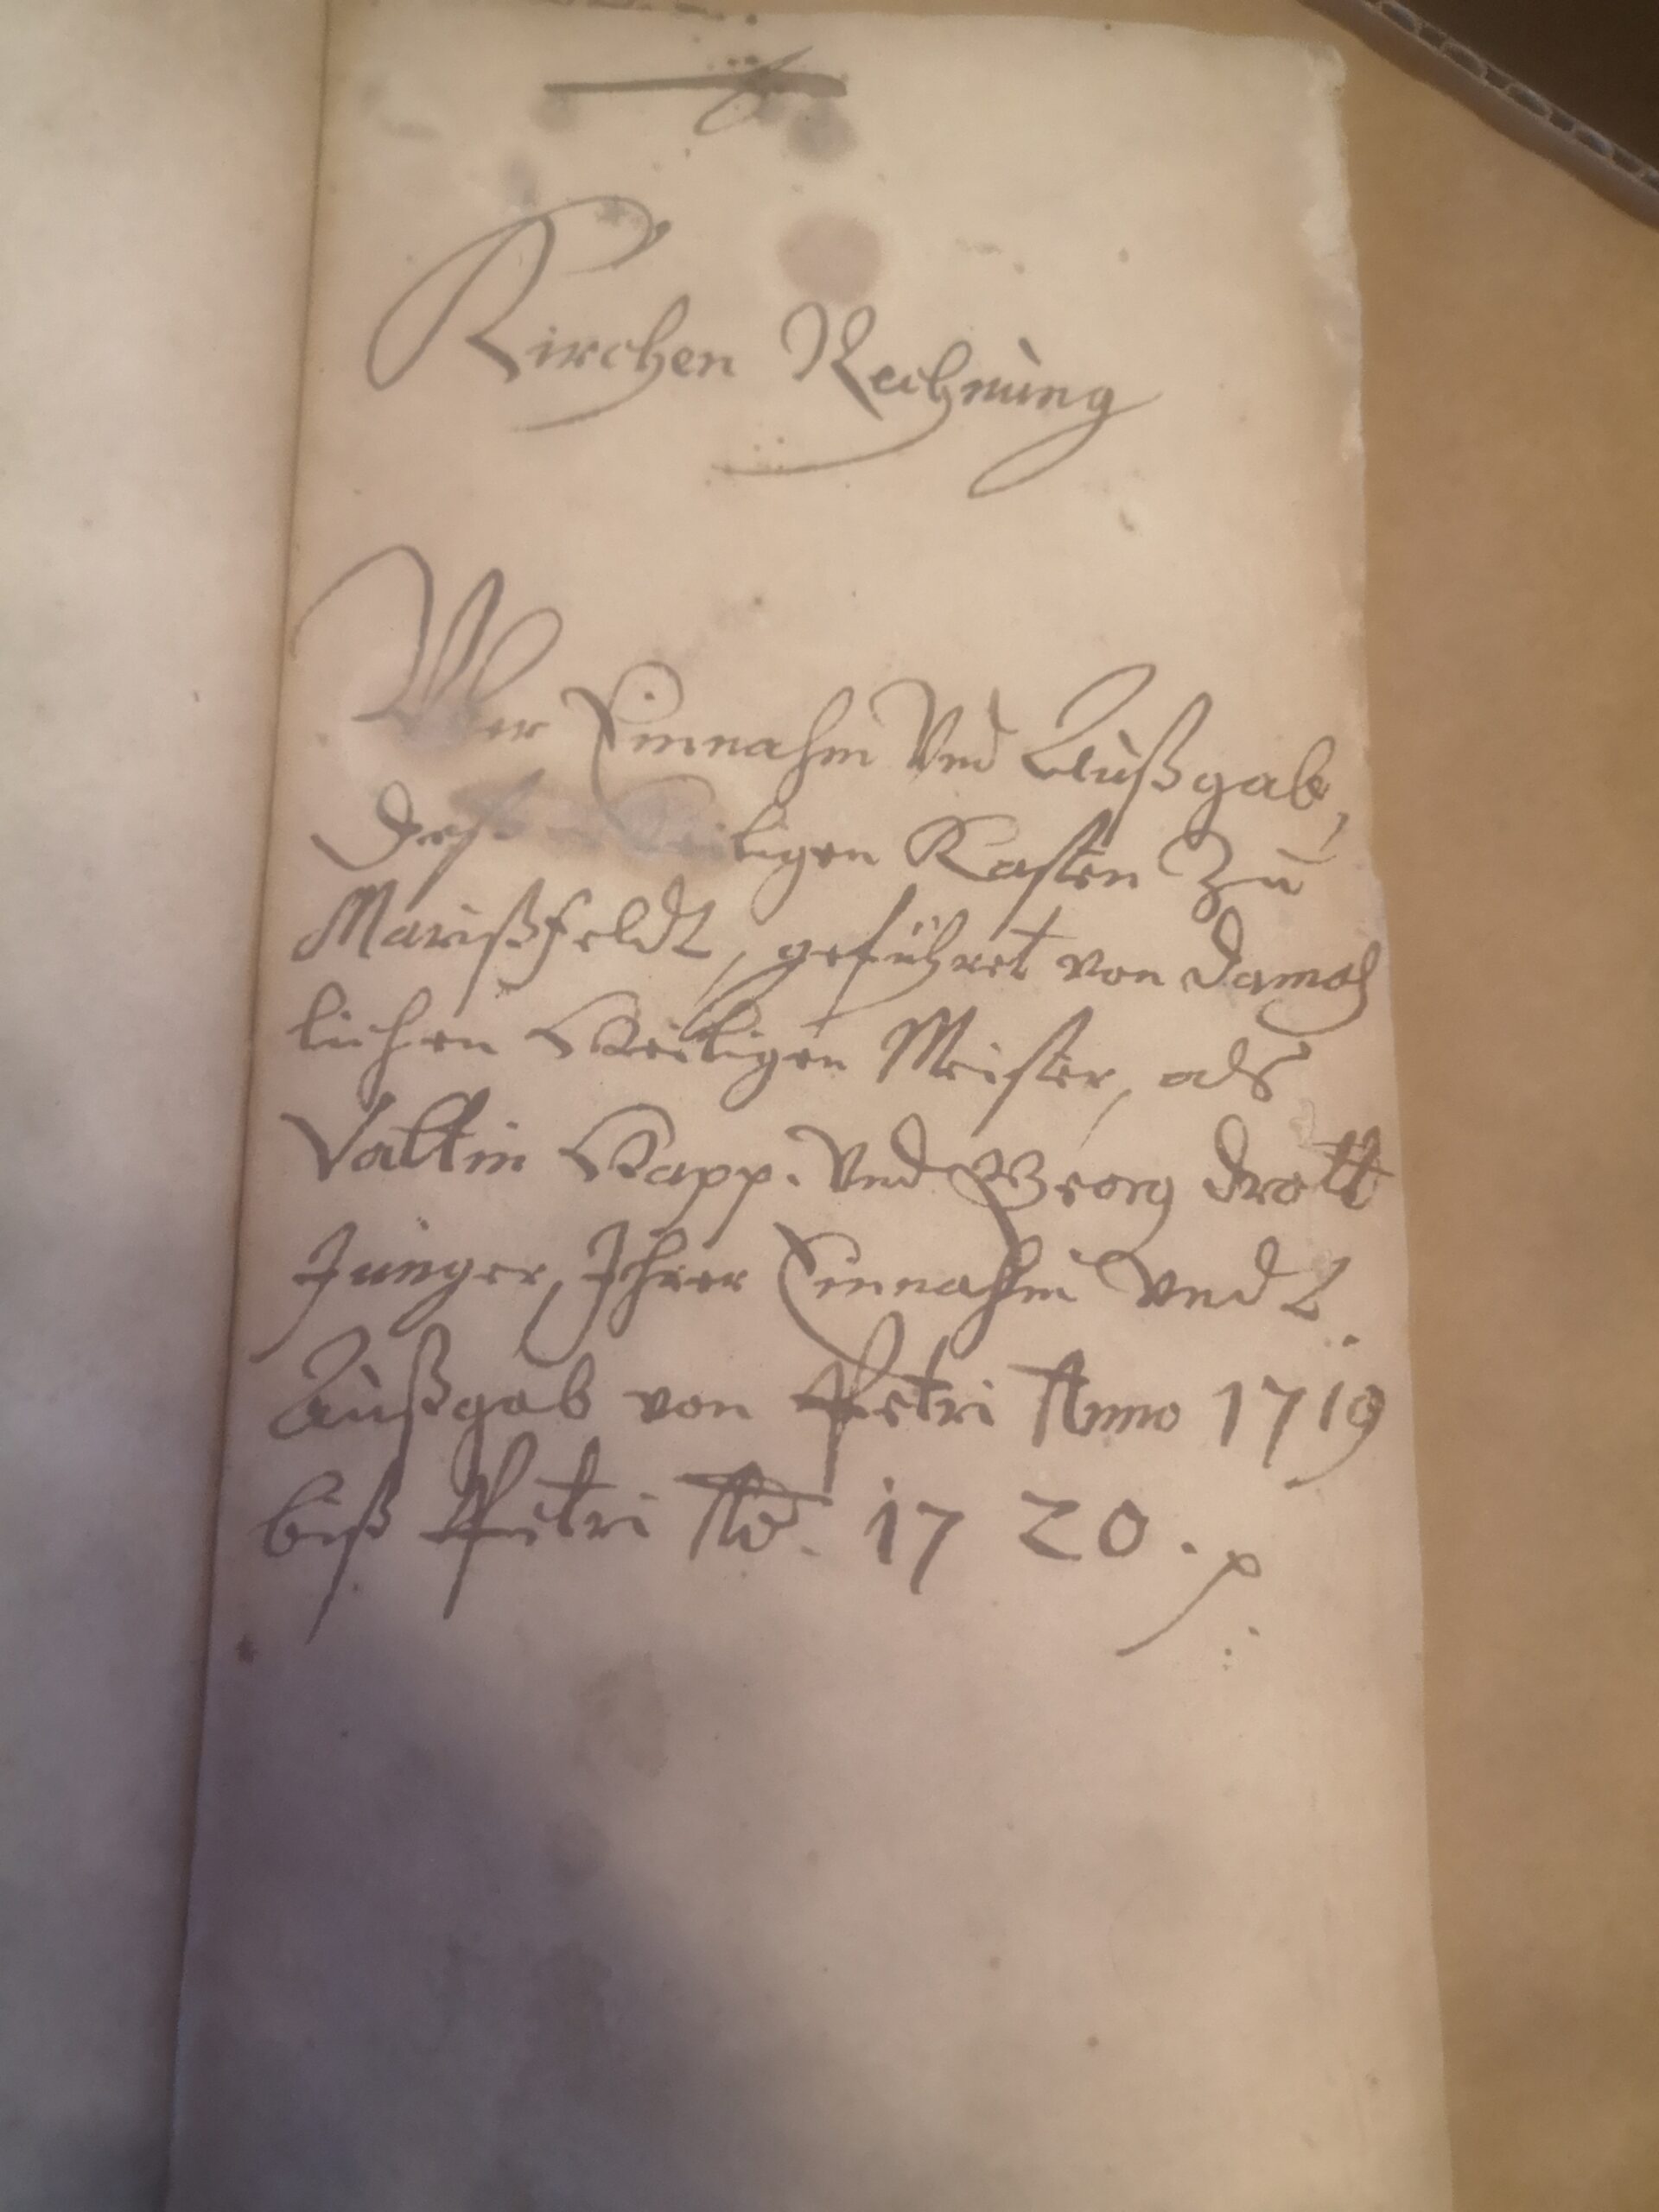 Kirchen Rechnung
Vber Einnahm Vnd Außgab,
deß Heiligen Kasten Zu
Marißfeldt, geführet von damah
lichen Heiligen Meister, als
Valtin Happ. Vnd Georg Drott
Junger, Ihrer Einnahm Vnd
Außgab von Petri Anno 1719
biß Petri Ao. 1720.